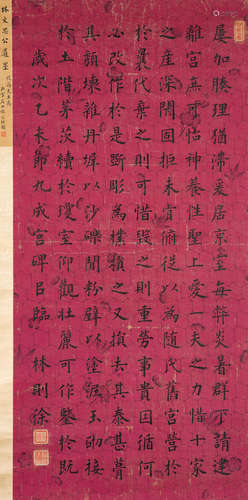 林文忠公遺墨
屢加腠理猶滯爰居京室每弊炎暑群下請建
離宮庶可怡神養性聖上愛一夫之力惜十家
之產深閉固拒未肯俯從以為隨氏舊宮營於
於曩代棄之則可惜毀之則重勞事貴因循何
必改作於是斲彫為樸損之又損去其泰甚葺
其頹壞雜丹墀以沙礫間粉壁以塗泥玉砌接
於土階茅茨續於瓊室仰觀壯麗可作鑒於既
歲次 九成宮碑 臨 林則徐